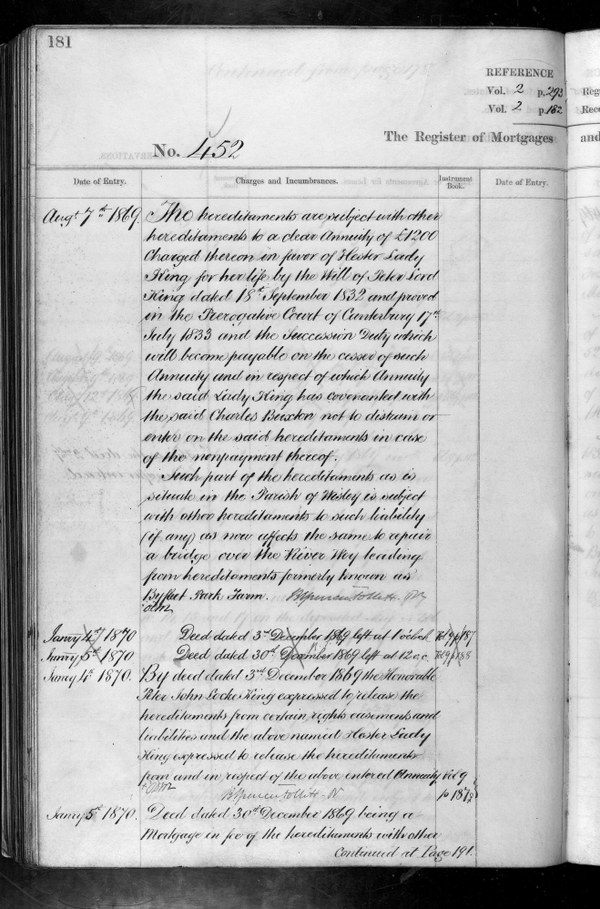 181
REFERENCE
Vol. 2 p. 293
Vol. 2 p. 182
Regi
Reco
The Register of Mortgages and
No. 452
Date of Entry.
Charges and Incumbrances.
Instrument Book.
Date of Entry.
Augt 7th 1869. The hereditaments are subject with other
hereditaments to a clear Annuity of £1200
Charged thereon in favor of Hester Lady
King for her life by the Will of Peter Lord
King dated 18th September 1832 and proved
in the Prerogative Court of Canterbury 17th
July 1833 and the Succession Duty which
will become payable on the cesser of such
Annuity and in respect of which Annuity
the said Lady King has covenanted with
the said Charles Buxton not to distrain or
enter on the said hereditaments in case
of the nonpayment thereof.
Such part of the hereditaments as is
situate in the Parish of Wisley is subject
with other hereditaments to such liability
(if any) as now affects the same to repair
a bridge over the River Wey leading
from hereditaments formerly known as
Byfleet Park Farm.
Janry 4th 1870 Deed dated 3rd December 1869 left at 1 o'clock Vol 9 p 187
Janry 5th 1870 Deed dated 30th December 1869 left at 12 o.c. Vol 9 p 188
Janry 4th 1870. By deed dated 3rd December 1869 the Honorable
Peter John Locke King expressed to release the
hereditaments from certain rights easements and
liabilities and the above named Hester Lady
King expressed to release the hereditaments
from and in respect of the above entered Annuity Vol 9
p 187
Janry 5th 1870. Deed dated 30th December 1869 being a
Mortgage in fee of the hereditaments with other
Continued at Page 191.